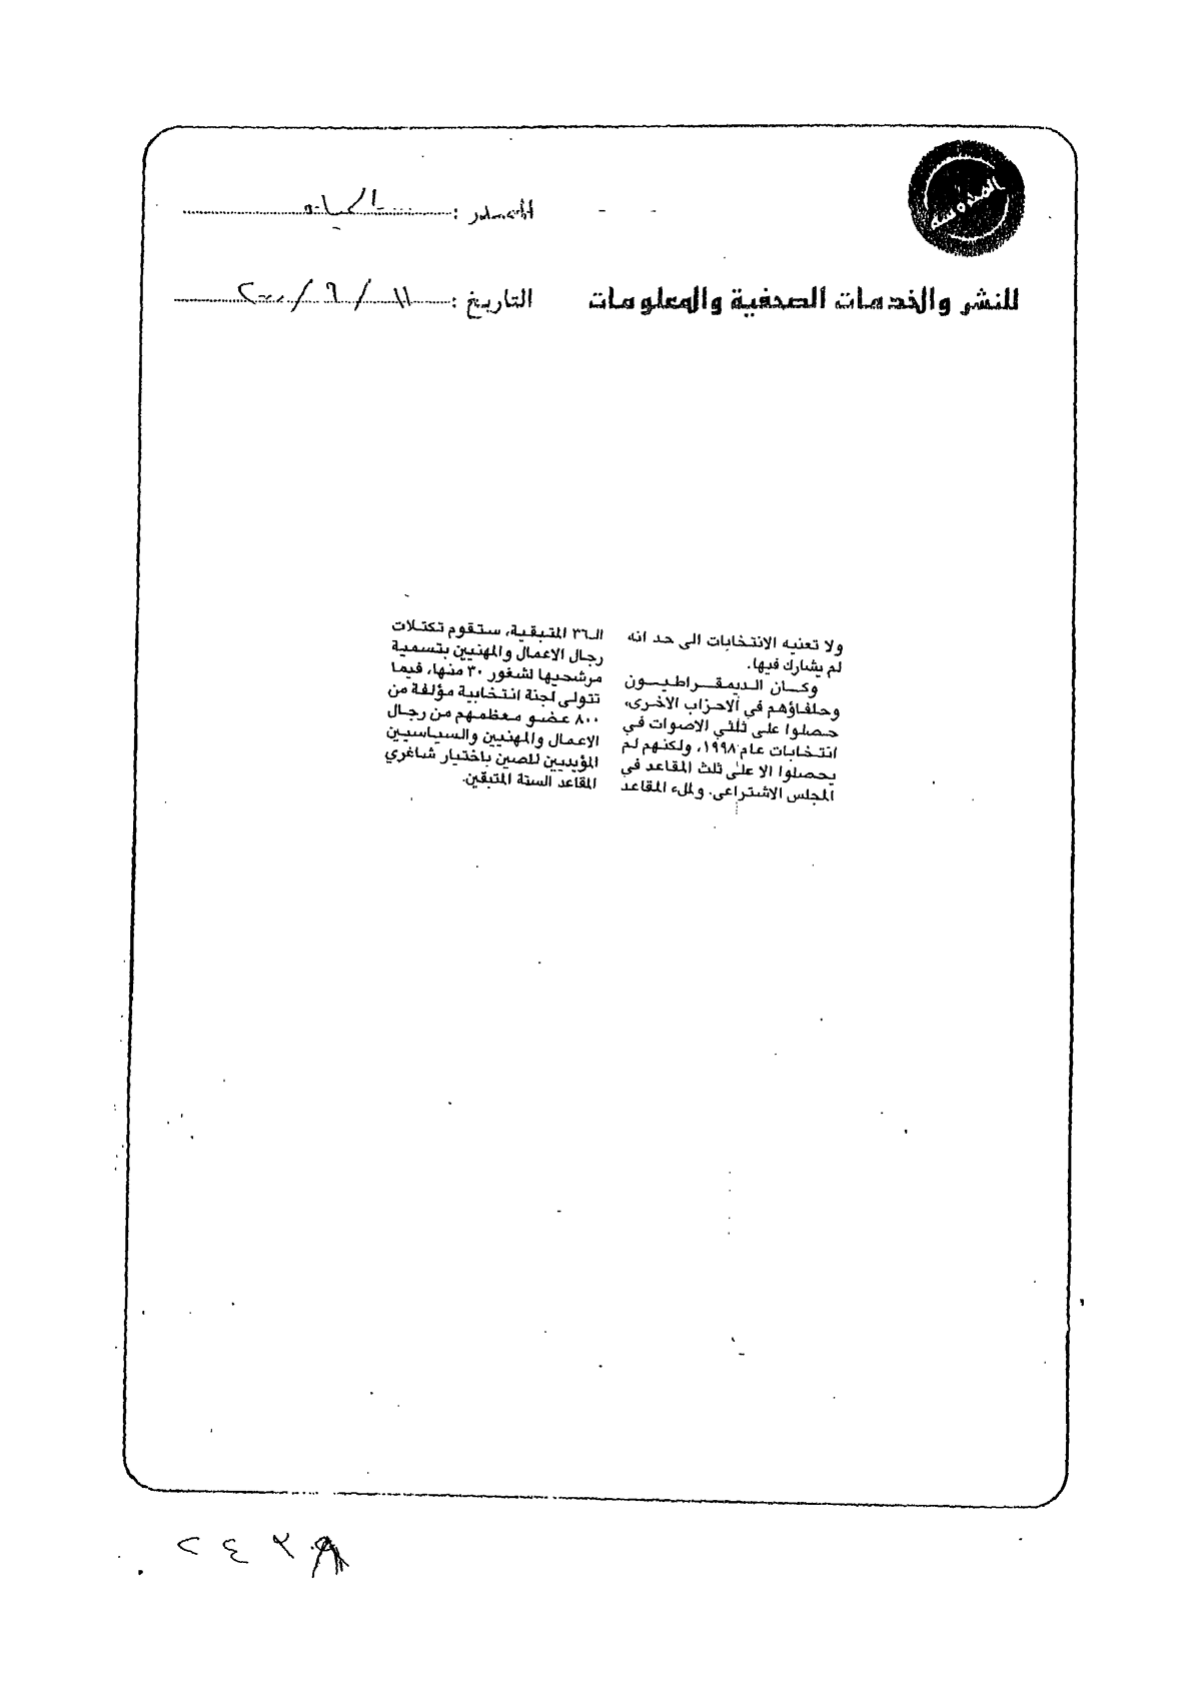 المصدر : الحياة
للنشر والخدمات الصحفية والمعلومات
التاريخ : ١١ / ٩ / ٢٠٠٠
ولا تعنيه الانتخابات الى حد انه
لم يشارك فيها.
وكـــان الـديمـقـــراطـيـــون
وحلفاؤهم في الاحزاب الاخرى،
حصلوا على ثلثي الاصوات في
انتخابات عام ١٩٩٨، ولكنهم لم
يحصلوا الا على ثلث المقاعد في
المجلس الاشتراعي. ولملء المقاعد
الـ٣٦ المتبقية، ستقوم تكتلات
رجال الاعمال والمهنيين بتسمية
مرشحيها لشغور ٣٠ منها، فيما
تتولى لجنة انتخابية مؤلفة من
٨٠٠ عضو معظمهم من رجال
الاعمال والمهنيين والسياسيين
المؤيديين للصين باختيار شاغري
المقاعد الستة المتبقين.